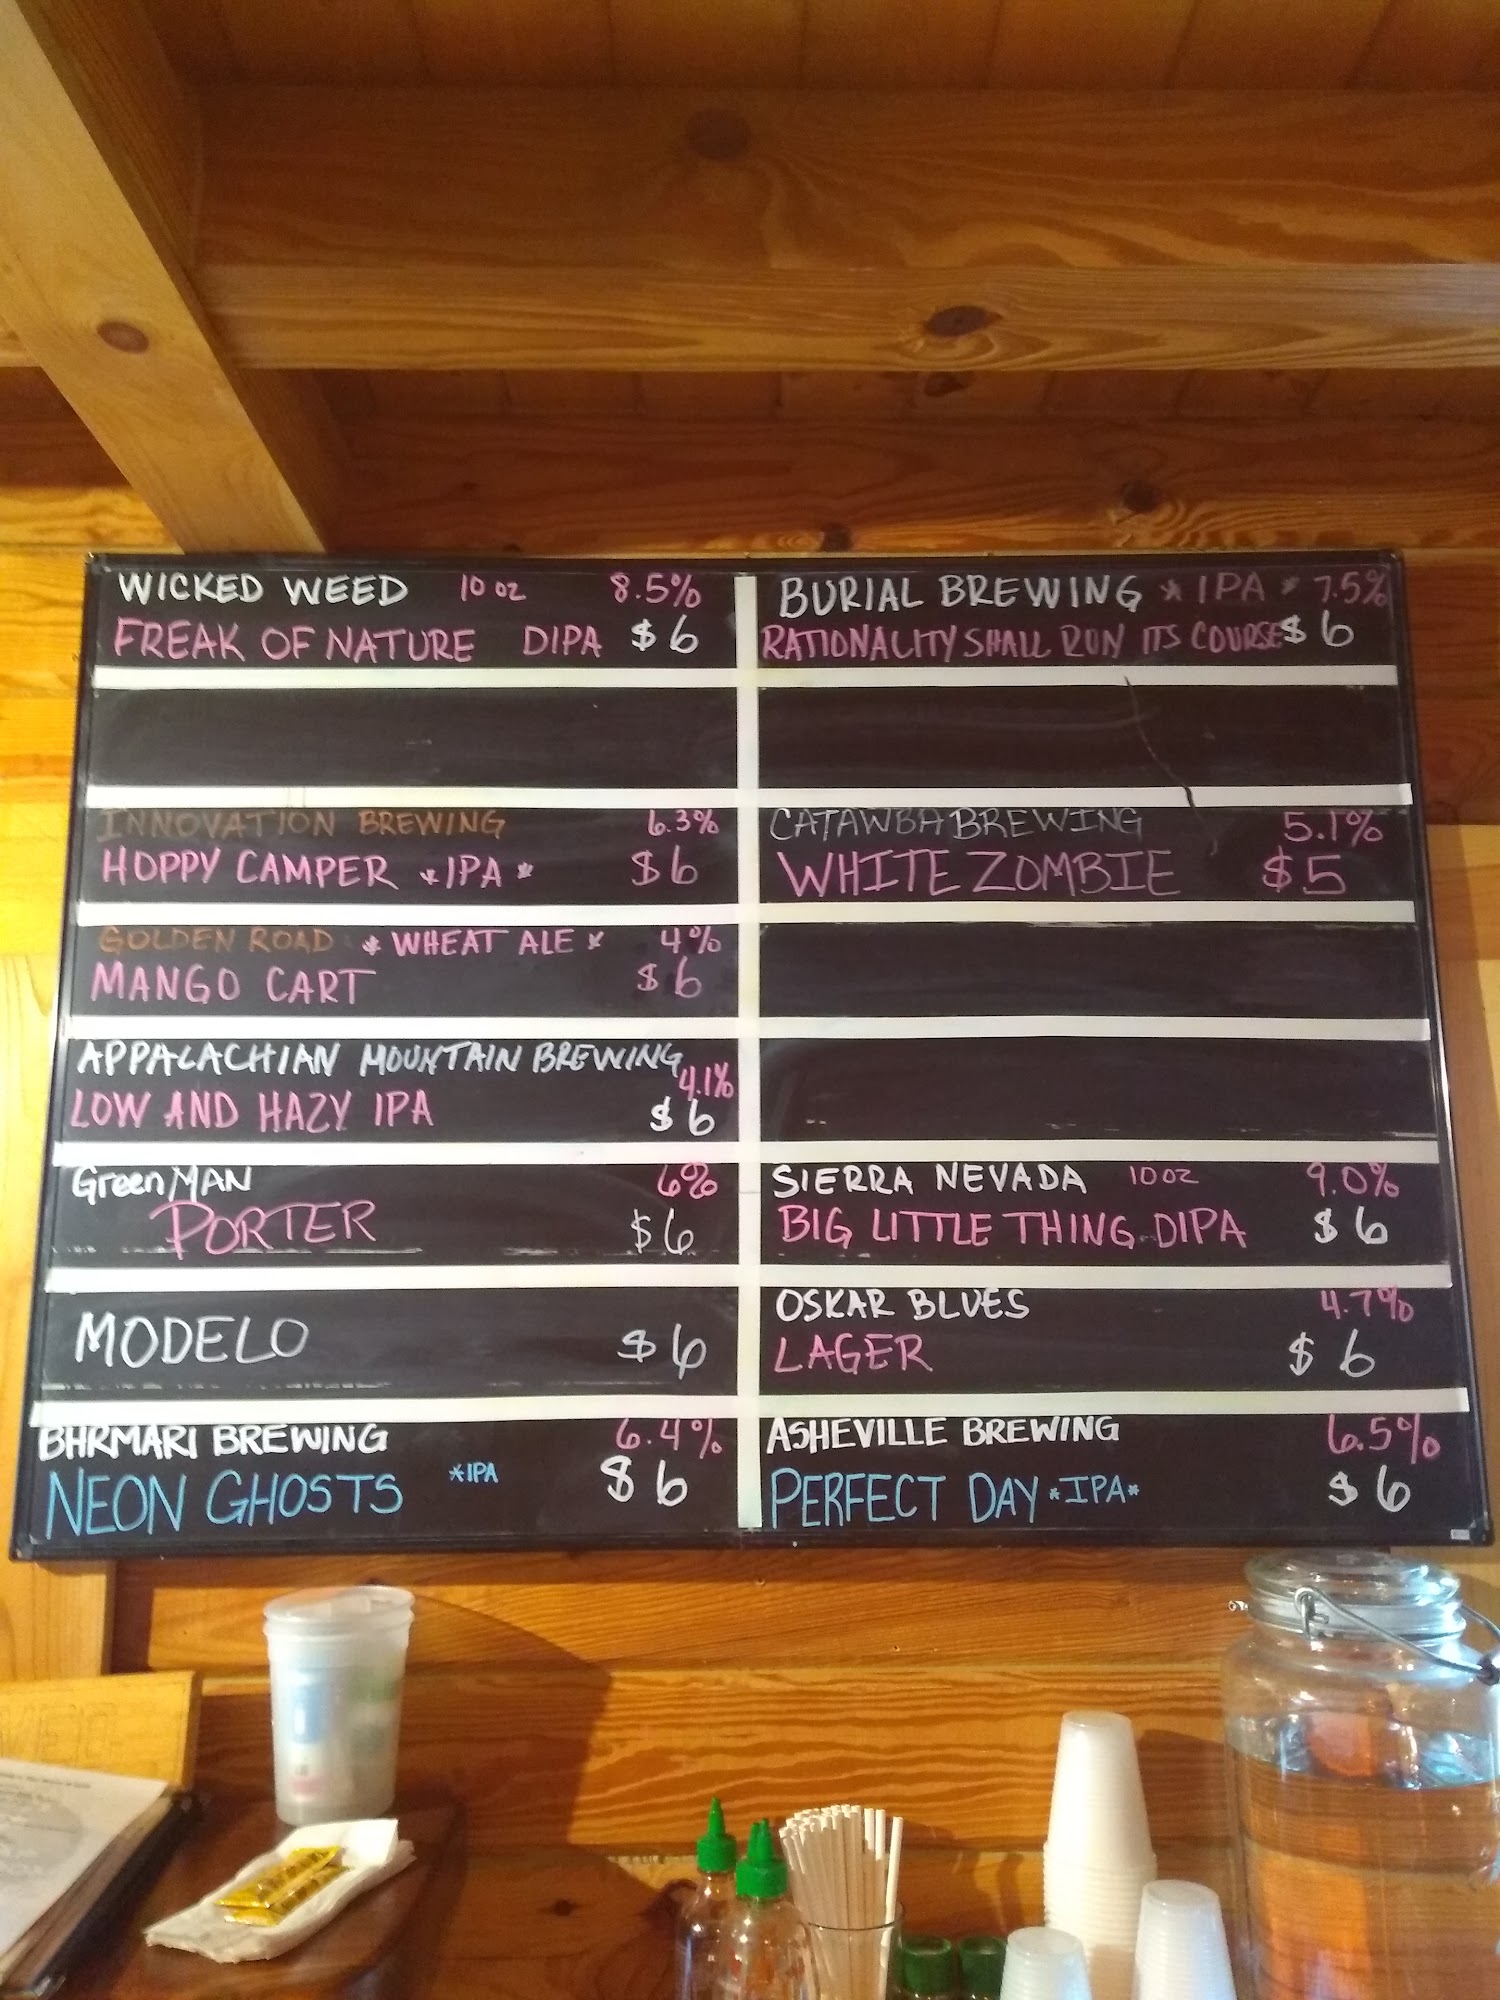 WICKED WEED 10 oz 8.5%
FREAK OF NATURE DIPA $6
INNOVATION BREWING 6.3%
HOPPY CAMPER *IPA* $6
GOLDEN ROAD *WHEAT ALE* 4%
MANGO CART $6
APPALACHIAN MOUNTAIN BREWING 4.1%
LOW AND HAZY IPA $6
Green MAN 6%
PORTER $6
MODELO $6
BHRMARI BREWING 6.4%
NEON GHOSTS *IPA $6
BURIAL BREWING *IPA* 7.5%
RATIONALITY SHALL RUN ITS COURSE $6
CATAWBA BREWING 5.1%
WHITE ZOMBIE $5
SIERRA NEVADA 10 oz 9.0%
BIG LITTLE THING DIPA $6
OSKAR BLUES 4.7%
LAGER $6
ASHEVILLE BREWING 6.5%
PERFECT DAY *IPA* $6